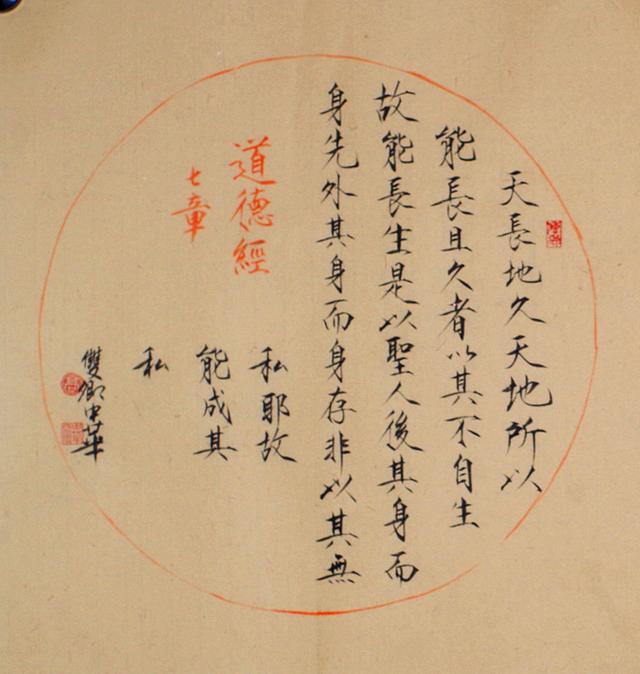 天長地久天地所以
能長且久者以其不自生
故能長生是以聖人後其身而
身先外其身而身存非以其無
私耶故
能成其
私
道德經
七章
雙鄉中華